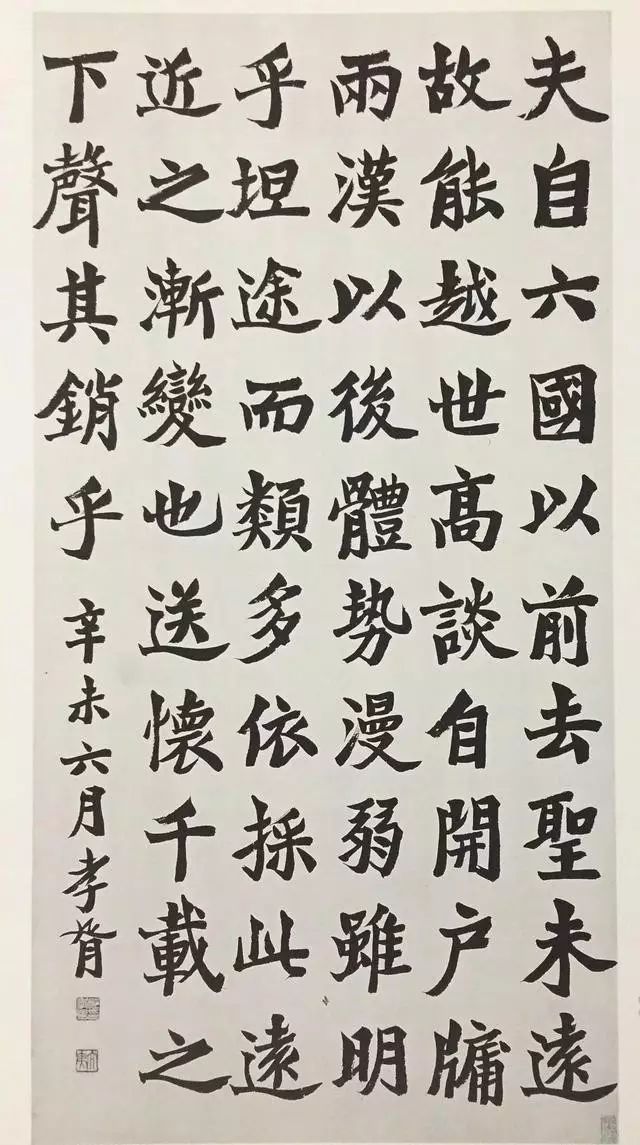 夫自六國以前去聖未遠
故能越世高談自開户牖
兩漢以後體勢漫弱雖明
乎坦途而類多依採此遠
近之漸變也送懷千載之
下聲其銷乎
辛未六月孝胥